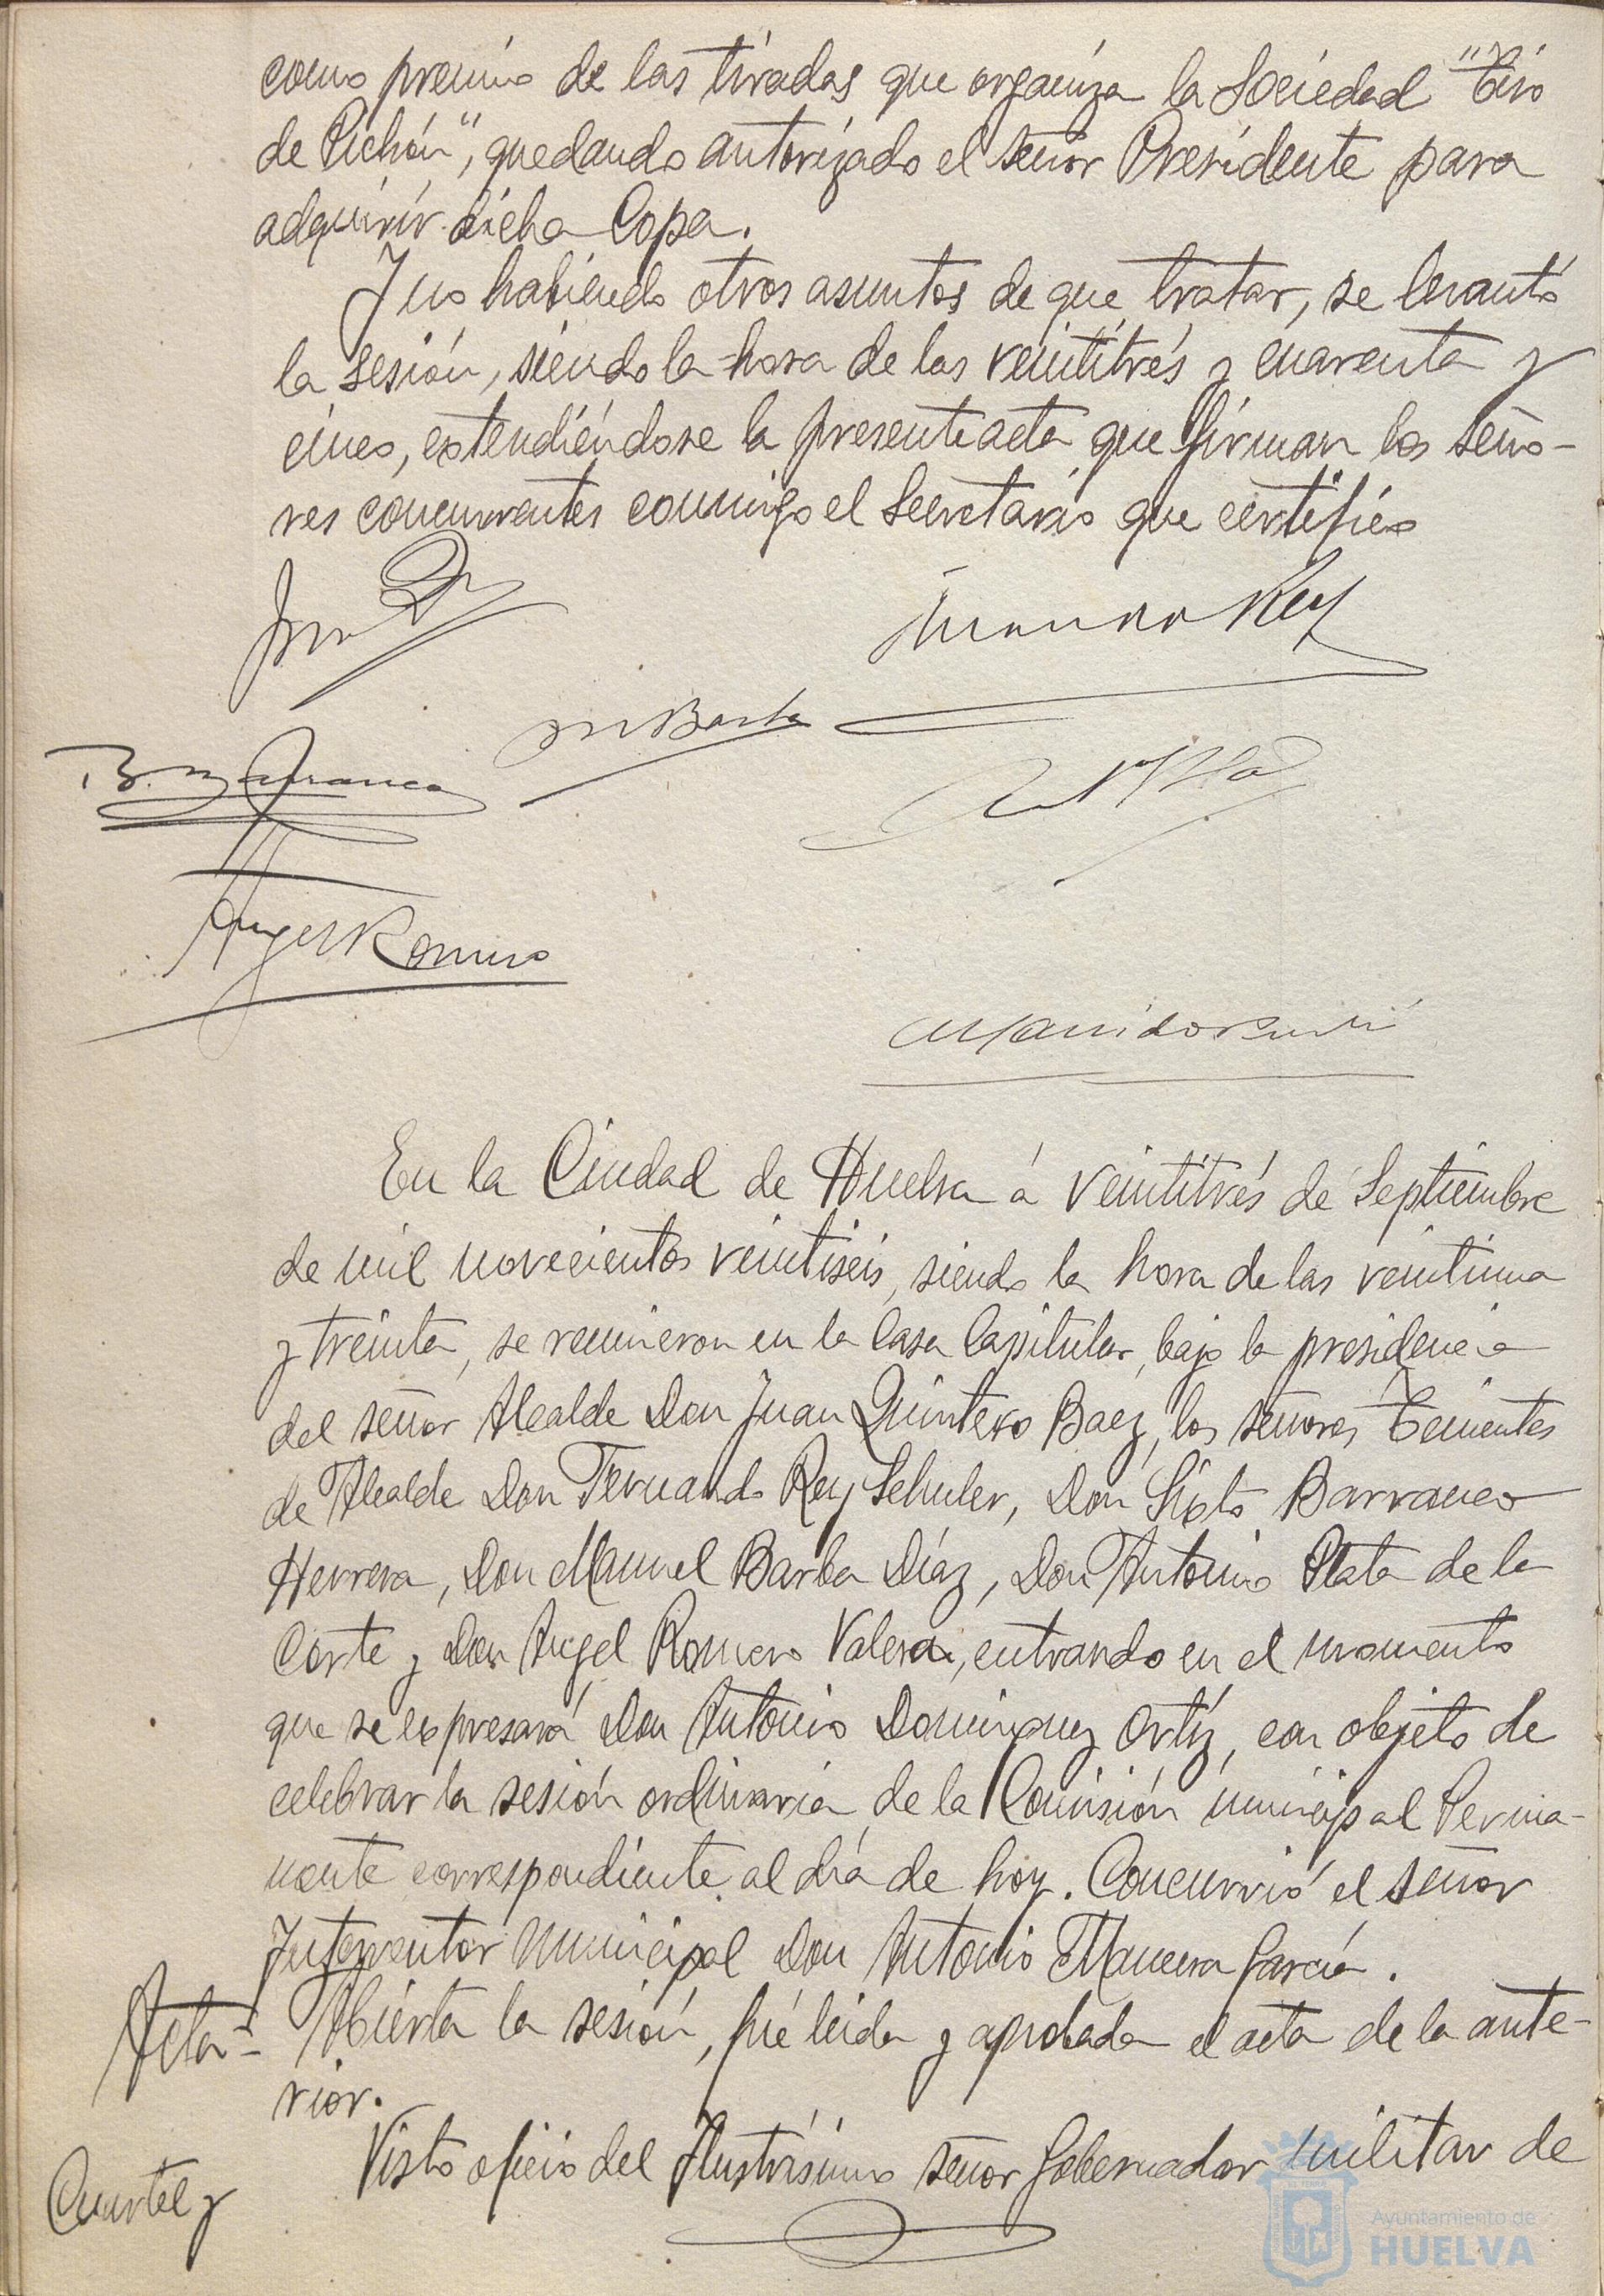 como premio de las tiradas que organiza la Sociedad "Tiro
de Pichón", quedando autorizado el señor Presidente para
adquirir dicha Copa.
Y no habiendo otros asuntos de que tratar, se levantó
la sesión, siendo la hora de las veintitrés y cuarenta y
cinco, extendiéndose la presente acta que firman los seño-
res concurrentes conmigo el Secretario que certifico
Rey
M Barba
Angel Romero
En la Ciudad de Huelva á veintitrés de Septiembre
de mil novecientos veintiseis, siendo la hora de las veintiuna
y treinta, se reunieron en la Casa Capitular, bajo la presidencia
del señor Alcalde Don Juan Quintero Baez, los señores Tenientes
de Alcalde Don Fernando Rey Schuler, Don Sixto Barranco
Herrera, Don Manuel Barba Díaz, Don Antonio Plata de la
Corte y Don Angel Romero Valera, entrando en el momento
que se expresará Don Antonio Dominguez Ortíz, con objeto de
celebrar la sesión ordinaria de la Comisión municipal Perma-
nente correspondiente al día de hoy. Concurrió el señor
Interventor Municipal Don Antonio Mancera García.
Acta = Abierta la sesión, fué leida y aprobada el acta de la ante-
rior.
Visto oficio del Ilustrísimo señor Gobernador militar de
Cuartel y
Ayuntamiento de
HUELVA